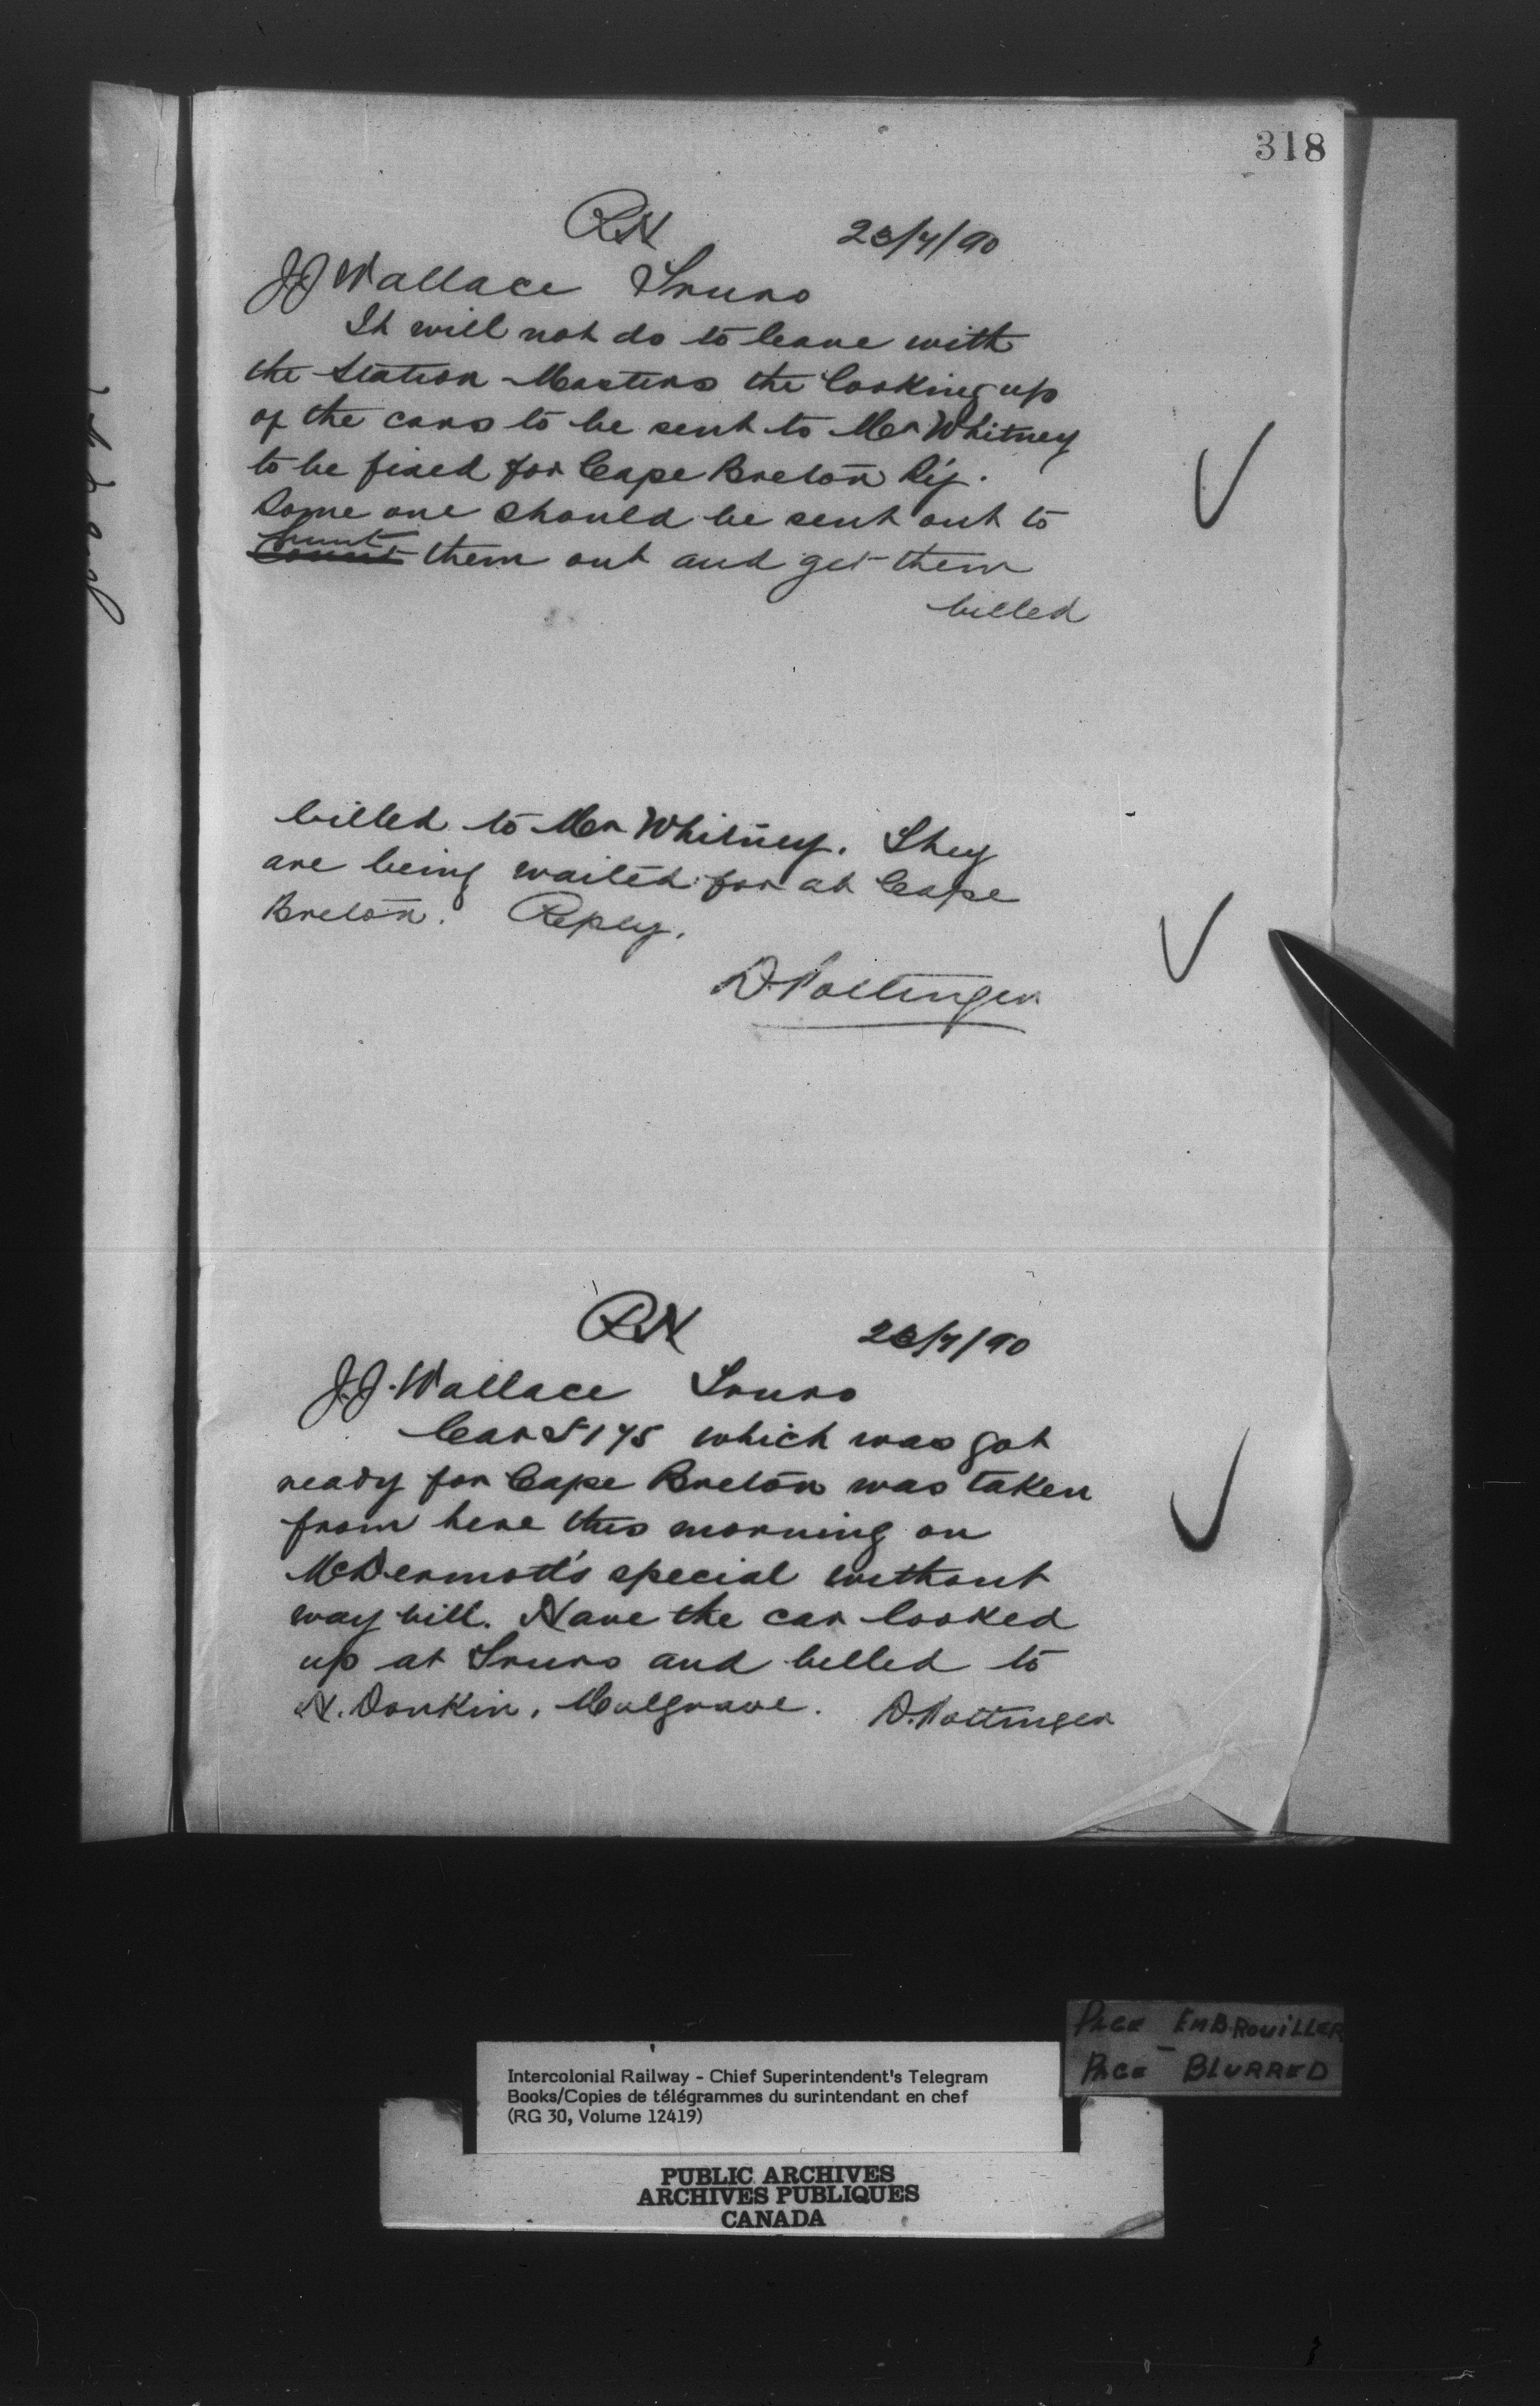 318
RN 23/7/90
J J Wallace Truro
It will not do to leave with
the Station Masters the looking up
of the cars to be sent to Mr Whitney
to be fixed for Cape Breton Ry.
Some one should be sent out to
hunt
them out and get them
billed
billed to Mr Whitney. They
are being waited for at Cape
Breton. Reply.
D. Pottinger
RN 23/7/90
J. J. Wallace Truro
Car S 175 which was got
ready for Cape Breton was taken
from here this morning on
McDermott's special without
way bill. Have the car looked
up at Truro and billed to
H. Donkin, Mulgrave. D. Pottinger
PAGE EMBROUILLER
PAGE BLURRED
Intercolonial Railway - Chief Superintendent's Telegram
Books/Copies de télégrammes du surintendant en chef
(RG 30, Volume 12419)
PUBLIC ARCHIVES
ARCHIVES PUBLIQUES
CANADA